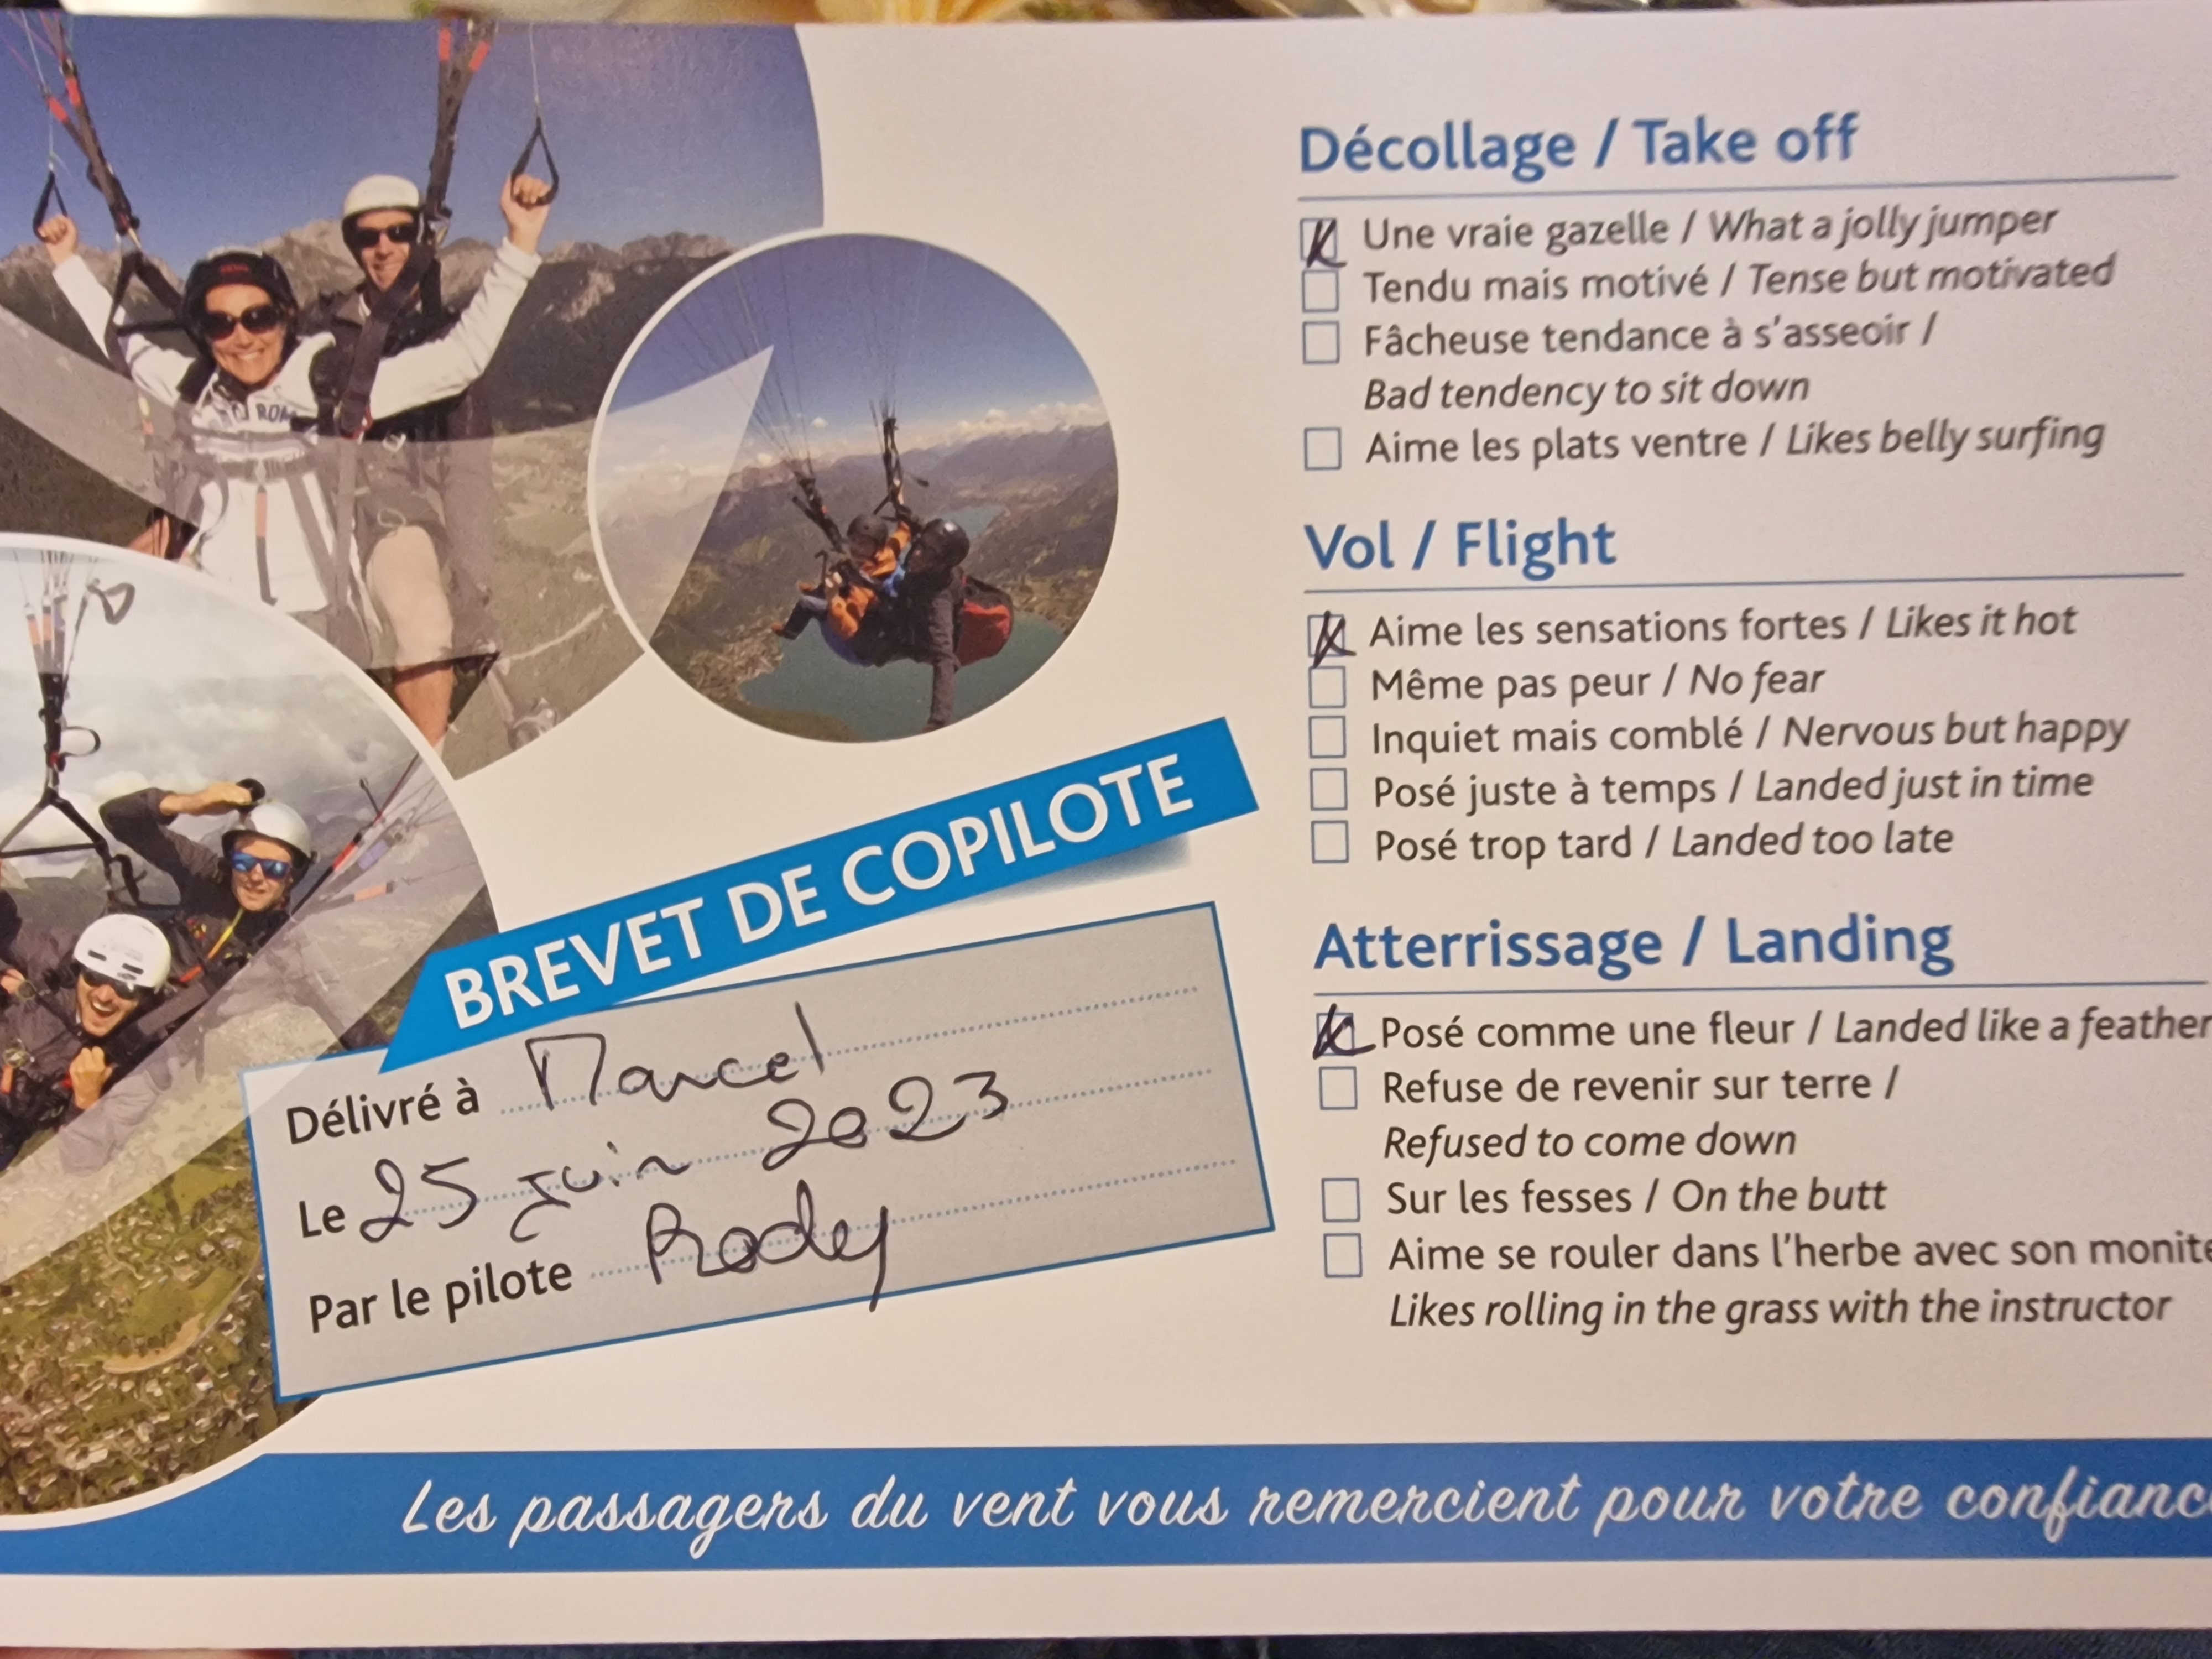 Décollage / Take off
Une vraie gazelle / What a jolly jumper
Tendu mais motivé / Tense but motivated
Fâcheuse tendance à s'asseoir /
Bad tendency to sit down
Aime les plats ventre / Likes belly surfing
Vol / Flight
Aime les sensations fortes / Likes it hot
Même pas peur / No fear
Inquiet mais comblé / Nervous but happy
Posé juste à temps / Landed just in time
Posé trop tard / Landed too late
Atterrissage / Landing
Posé comme une fleur / Landed like a feather
Refuse de revenir sur terre /
Refused to come down
Sur les fesses / On the butt
Aime se rouler dans l'herbe avec son monite
Likes rolling in the grass with the instructor
BREVET DE COPILOTE
Délivré à Marcel
Le 25 juin 2023
Par le pilote Rody
Les passagers du vent vous remercient pour votre confianc